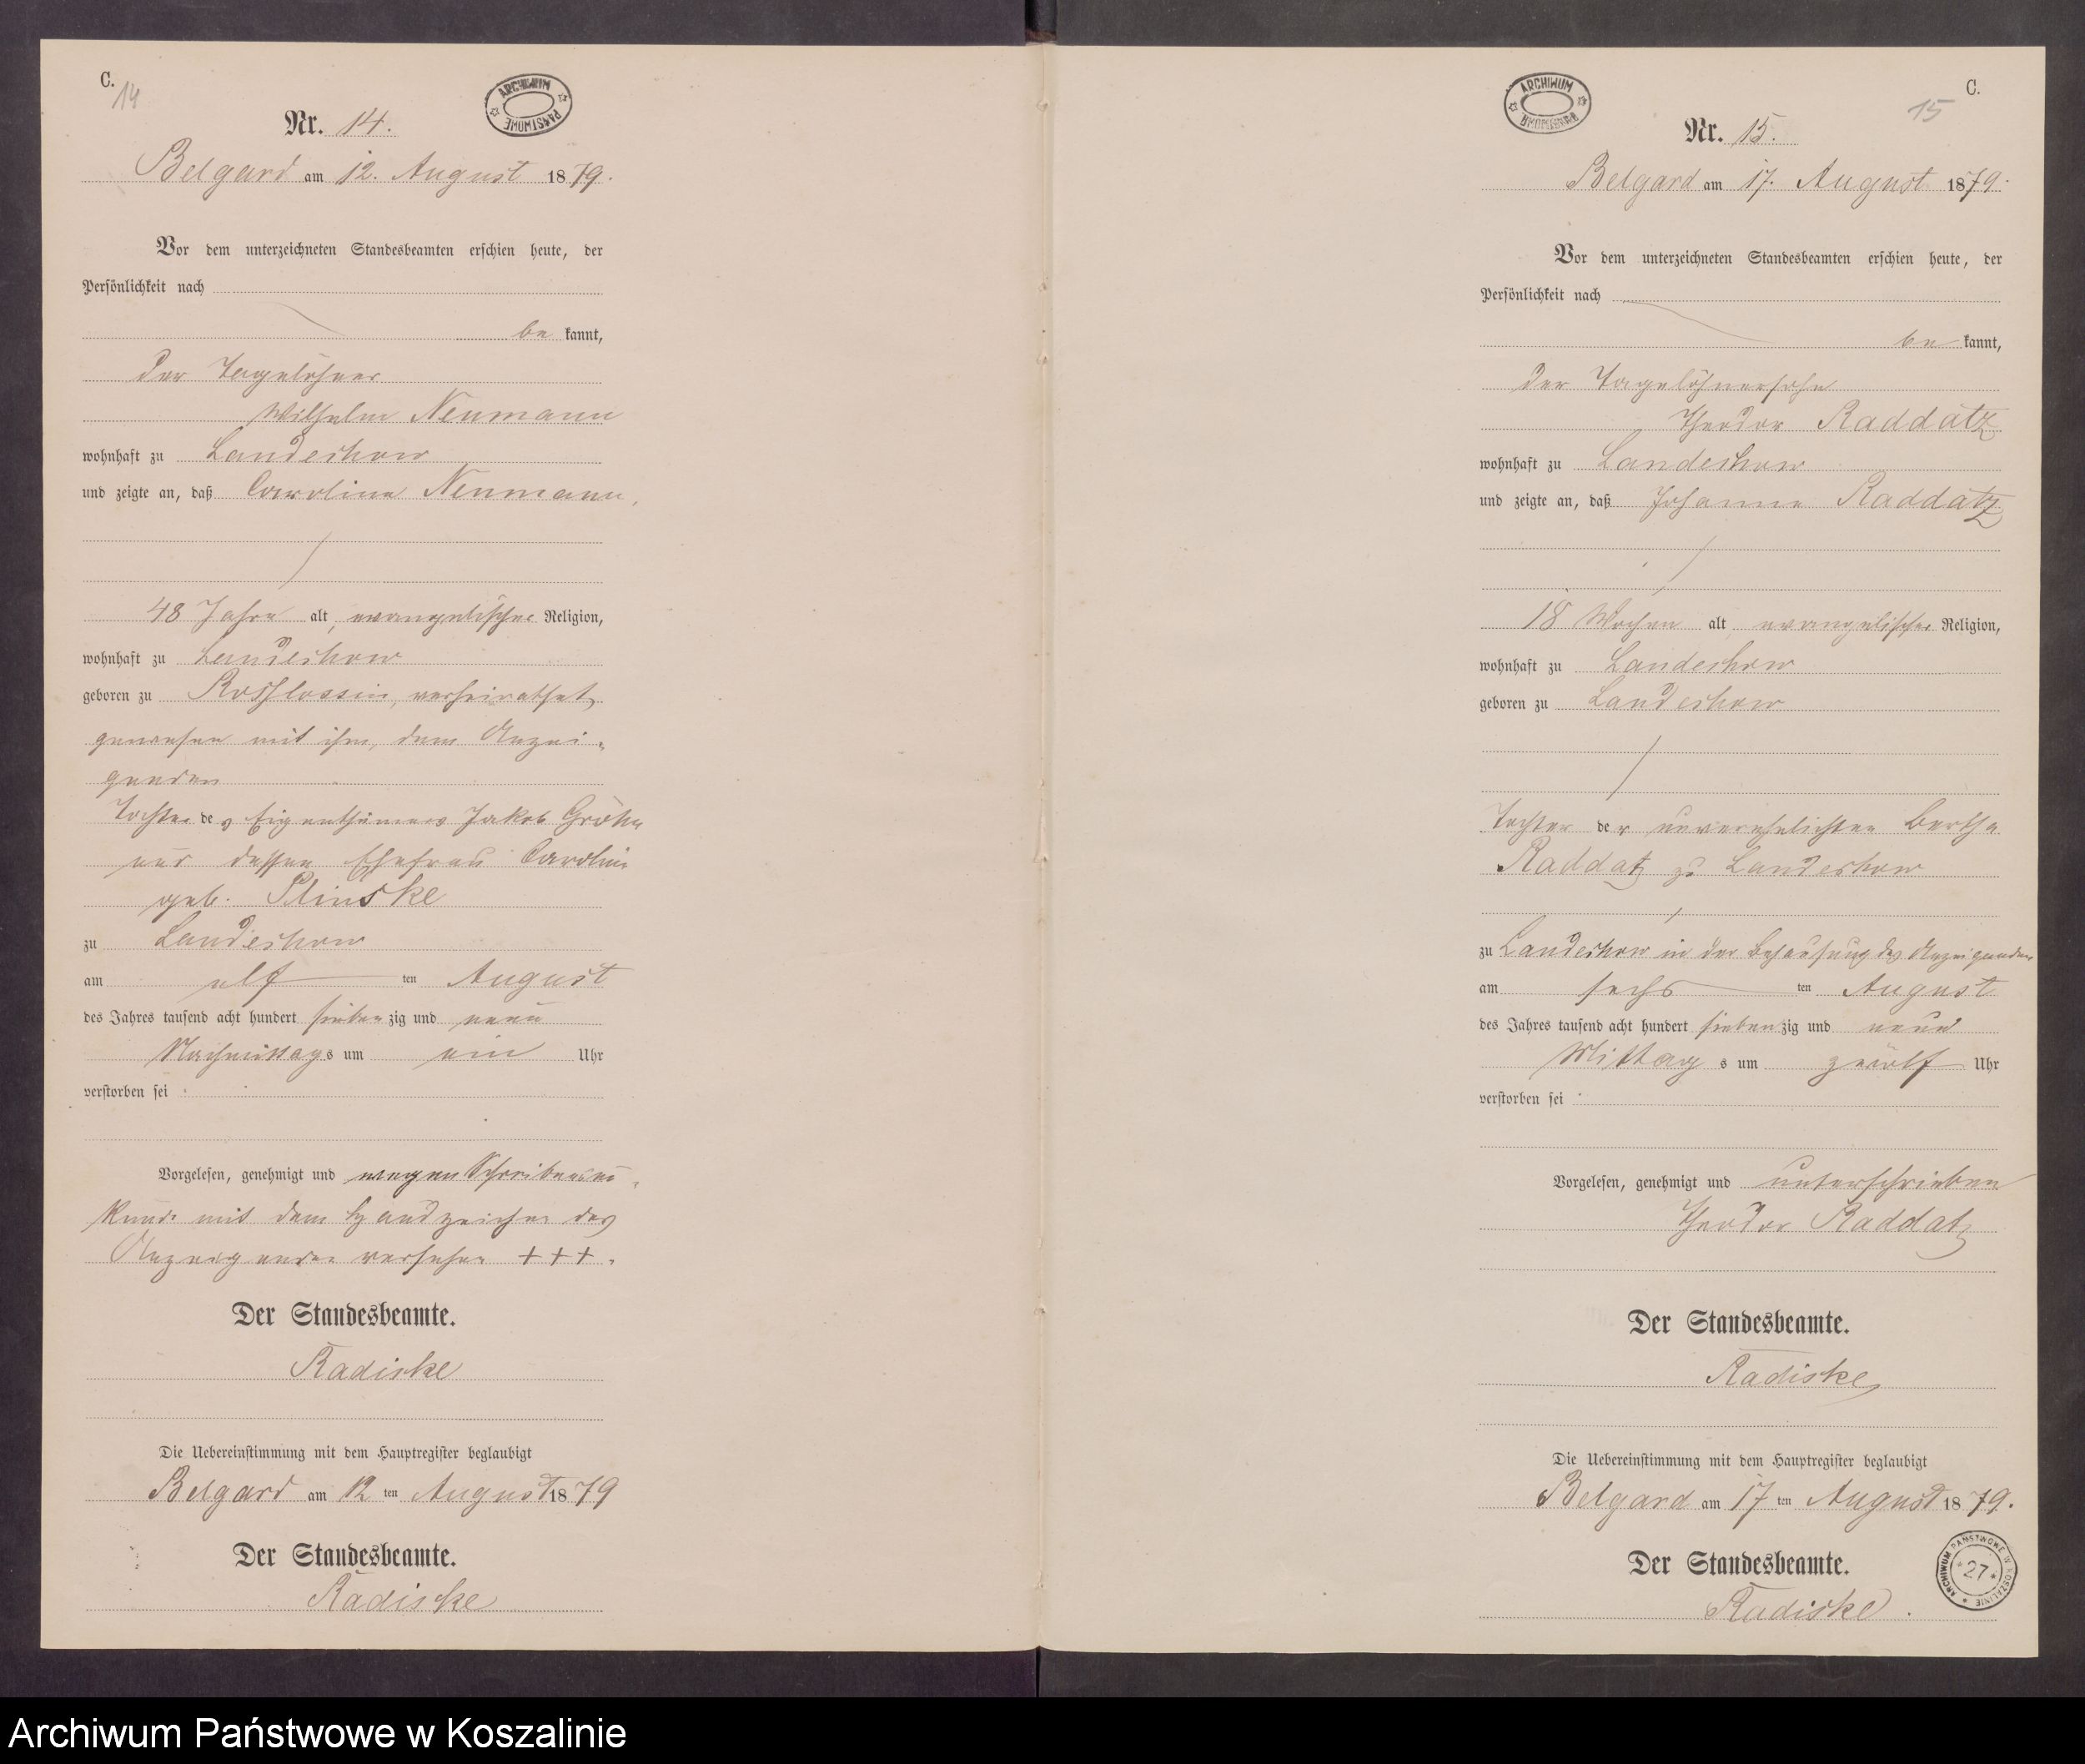 C.
14
ARCHIWUM PAŃSTWOWE
Nr. 14.
Belgard am 12. August 1879.
Vor dem unterzeichneten Standesbeamten erschien heute, der
Persönlichkeit nach
be kannt,
der Tagelöhner
Wilhelm Neumann
wohnhaft zu Landeshow
und zeigte an, daß Caroline Neumann,
48 Jahre alt, evangelischer Religion,
wohnhaft zu Landeshow
geboren zu verheirathet
gewesen mit ihm, dem Anzei-
genden
Tochter des Eigenthümers Jakob Gröhn
und dessen Ehefrau Caroline
geb. Plinske
zu Landeshow
am elf ten August
des Jahres tausend acht hundert siebenzig und neun
Nachmittags um ein Uhr
verstorben sei
Vorgelesen, genehmigt und wegen Schreibensun-
kunde mit dem Handzeichen des
Anzeigenden versehen +++.
Der Standesbeamte.
Radiske
Die Uebereinstimmung mit dem Hauptregister beglaubigt
Belgard am 12 ten August 1879
Der Standesbeamte.
Radiske
C.
15
ARCHIWUM PAŃSTWOWE
Nr. 15.
Belgard am 17. August 1879.
Vor dem unterzeichneten Standesbeamten erschien heute, der
Persönlichkeit nach
be kannt,
der Tagelöhnersohn
Theodor Raddatz
wohnhaft zu Landeshow
und zeigte an, daß Johanne Raddatz
18 Wochen alt, evangelischer Religion,
wohnhaft zu Landeshow
geboren zu Landeshow
Tochter der unverehelichten Bertha
Raddatz zu Landeshow
zu Landeshow in der Behausung des Anzeigenden
am sechs ten August
des Jahres tausend acht hundert siebenzig und neun
Mittags um zwölf Uhr
verstorben sei
Vorgelesen, genehmigt und unterschrieben
Theodor Raddatz
Der Standesbeamte.
Radiske
Die Uebereinstimmung mit dem Hauptregister beglaubigt
Belgard am 17 ten August 1879.
Der Standesbeamte.
Radiske.
ARCHIWUM PAŃSTWOWE W KOSZALINIE
*27*
Archiwum Państwowe w Koszalinie